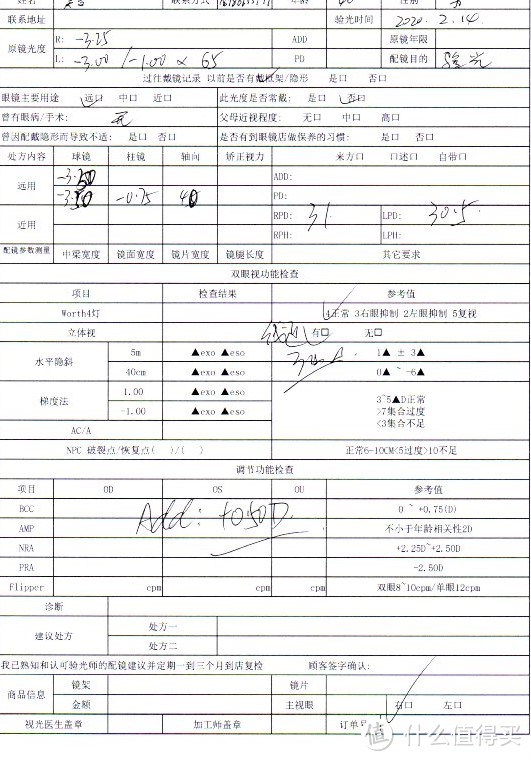 联系方式
联系地址 验光时间 2020. 2. 14.
原镜光度 R: -3.25 ADD 原镜年限
L: -3.00 / -1.00 × 65 PD 配镜目的 验光
过往戴镜记录 以前是否有戴框架/隐形 是口 否口
眼镜主要用途 远口 中口 近口 此光度是否常戴: 是口 否口
曾有眼病/手术: 无 父母近视程度: 无口 中口 高口
曾因配戴隐形而导致不适: 是口 否口 是否有到眼镜店做保养的习惯: 是口 否口
处方内容 球镜 柱镜 轴向 矫正视力 来方口 口述口 自带口
远用 ADD:
-0.75 PD:
近用 RPD: 31. LPD: 30.5.
RPH: LPH:
配镜参数测量 中梁宽度 镜面宽度 镜片宽度 镜腿长度 其它要求
双眼视功能检查
项目 检查结果 参考值
Worth4灯 4正常 3右眼抑制 2左眼抑制 5复视
立体视 有口 无口
水平隐斜 5m ▲exo ▲eso 1▲ ± 3▲
40cm ▲exo ▲eso 0▲ ~ -6▲
梯度法 1.00 ▲exo ▲eso 3~5▲D正常
-1.00 ▲exo ▲eso >7集合过度
AC/A <3集合不足
NPC 破裂点/恢复点( )/( ) 正常6-10CM<5过度>10不足
调节功能检查
项目 OD OS OU 参考值
BCC 0 ~ +0.75(D)
AMP Add: +0.50D 不小于年龄相关性2D
NRA +2.25D~+2.50D
PRA -2.50D
Flipper cpm cpm cpm 双眼8~10cpm/单眼12cpm
诊断
建议处方 处方一
处方二
我已熟知和认可验光师的配镜建议并定期一到三个月到店复检 顾客签字确认:
商品信息 镜架 镜片
金额 主视眼 右口 左口
视光医生盖章 加工师盖章 订单
值 什么值得买